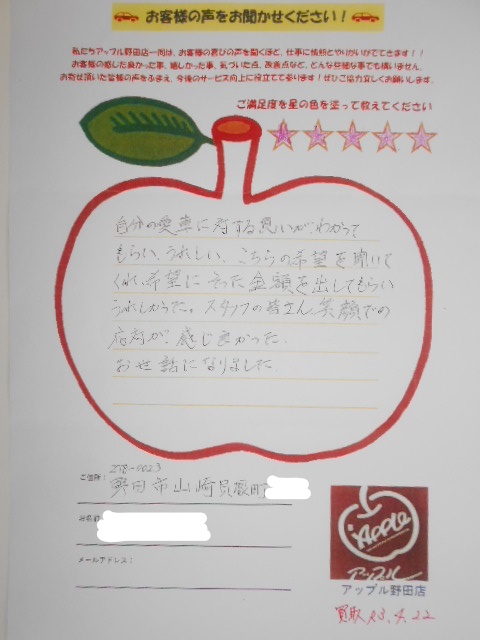 お客様の声をお聞かせください!
私たちアップル野田店一同は、お客様の喜びの声を聞くほど、仕事に情熱とやりがいがでてきます!!
お客様の感じた良かった事、嬉しかった事、気づいた点、改善点など、どんな些細な事でも構いません。
お寄せ頂いた皆様の声をふまえ、今後のサービス向上に役立てて参ります!ぜひご協力宜しくお願いします。
ご満足度を星の色を塗って教えてください
自分の愛車に対する思いが、わかって
もらい、うれしい、こちらの希望を聞いて
くれ、希望にそった金額を出してもらい
うれしかった。スタッフの皆さん笑顔での
応対が、感じ良かった。
お世話になりました
ご住所: 278-0023
野田市山崎貝塚町
お名前:
メールアドレス:
Apple
アップル
アップル野田店
買取 R3.4.22